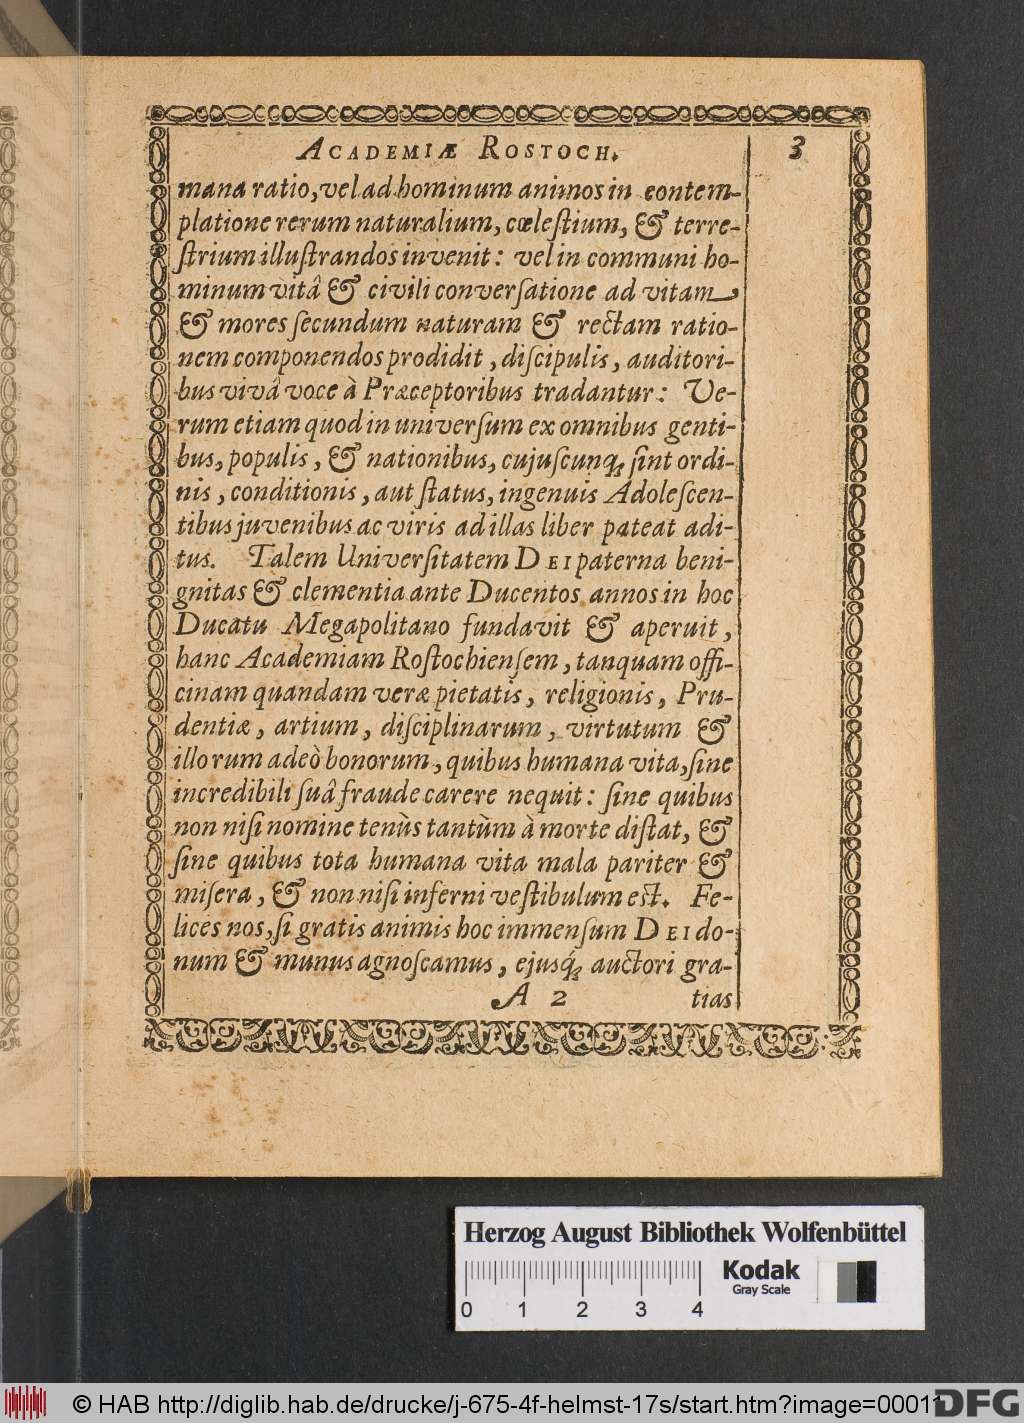 ACADEMIÆ ROSTOCH. 3
mana ratio, vel ad hominum animos in contem-
platione rerum naturalium, cœleſtium, & terre-
ſtrium illuſtrandos invenit: vel in communi ho-
minum vitâ & civili converſatione ad vitam
& mores ſecundum naturam & rectam ratio-
nem componendos prodidit, diſcipulis, auditori-
bus vivâ voce à Præceptoribus tradantur: Ve-
rum etiam quod in univerſum ex omnibus genti-
bus, populis, & nationibus, cujuſcunq; ſint ordi-
nis, conditionis, aut ſtatus, ingenuis Adoleſcen-
tibus juvenibus ac viris ad illas liber pateat adi-
tus. Talem Univerſitatem DEI paterna beni-
gnitas & clementia ante Ducentos annos in hoc
Ducatu Megapolitano fundavit & aperuit,
hanc Academiam Roſtochienſem, tanquam offi-
cinam quandam veræ pietatis, religionis, Pru-
dentiæ, artium, diſciplinarum, virtutum &
illorum adeò bonorum, quibus humana vita, ſine
incredibili ſuâ fraude carere nequit: ſine quibus
non niſi nomine tenùs tantùm à morte diſtat, &
ſine quibus tota humana vita mala pariter &
miſera, & non niſi inferni veſtibulum eſt. Fe-
lices nos, ſi gratis animis hoc immenſum DEI do-
num & munus agnoſcamus, ejusq́; auctori gra-
A 2 tias
Herzog August Bibliothek Wolfenbüttel
Kodak
Gray Scale
0 1 2 3 4
© HAB http://diglib.hab.de/drucke/j-675-4f-helmst-17s/start.htm?image=00011
DFG